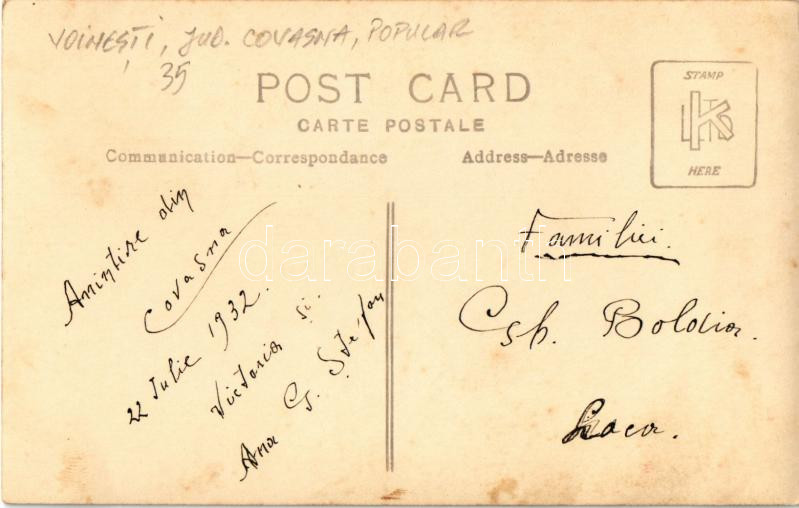 VOINEȘTI, JUD. COVASNA, POPULAR
35
POST CARD
CARTE POSTALE
Communication—Correspondance
Address—Adresse
STAMP
HERE
Amintire din
Covasna
22 Iulie 1932.
Victoria și
Ana G. Ștefan
Familiei
Boldior.
darabanth